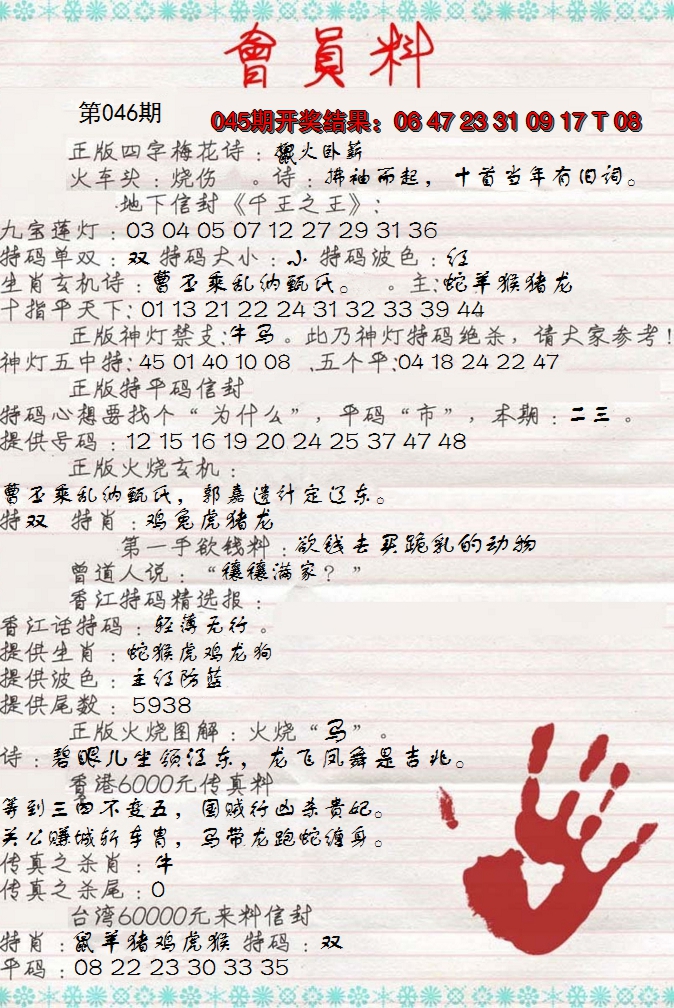 會員料
第046期
045期开奖结果：06 47 23 31 09 17 T 08
正版四字梅花诗：鼠火卧薪
火车头：烧伤 。诗：拂袖而起，十首当年有旧词。
地下信封《千王之王》：
九宝莲灯：03 04 05 07 12 27 29 31 36
特码单双：双 特码大小：小 特码波色：红
生肖玄机诗：曹丕乘乱纳甄氏。 。主:蛇羊猴猪龙
十指平天下:01 13 21 22 24 31 32 33 39 44
正版神灯禁支:牛马。此乃神灯特码绝杀，请大家参考!
神灯五中特:45 01 40 10 08 .五个平:04 18 24 22 47
正版特平码信封
特码心想要找个“为什么”，平码“市”，本期：二三。
提供号码：12 15 16 19 20 24 25 37 47 48
正版火烧玄机：
曹丕乘乱纳甄氏，郭嘉遗计定辽东。
特双 特肖：鸡兔虎猪龙
第一手欲钱料：欲钱去买跪乳的动物
曾道人说：“穰穰满家？”
香江特码精选报：
香江话特码：轻薄无行。
提供生肖：蛇猴虎鸡龙狗
提供波色：主红防蓝
提供尾数：5938
正版火烧图解：火烧“马”。
诗：碧眼儿坐领江东，龙飞凤舞是吉兆。
香港6000元传真料
等到三四不变五，国贼行凶杀贵妃。
关公赚城斩车胄，马带龙跑蛇缠身。
传真之杀肖：牛
传真之杀尾：0
台湾60000元来料信封
特肖：鼠羊猪鸡虎猴 特码：双
平码：08 22 23 30 33 35